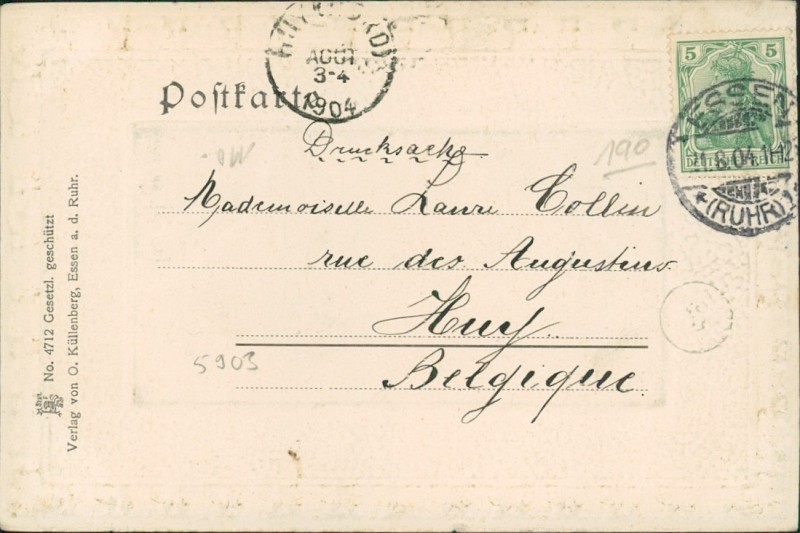 AOUT
3-4
1904
Postkarte
5
5
DEUTSCHES REICH
ESSEN
.8.04.11-12
(RUHR)
Drucksache
190
Mademoiselle Laure Collin
rue des Augustins
Huy
Belgique.
5903
No. 4712 Gesetzl. geschützt
Verlag von O. Küllenberg, Essen a. d. Ruhr.